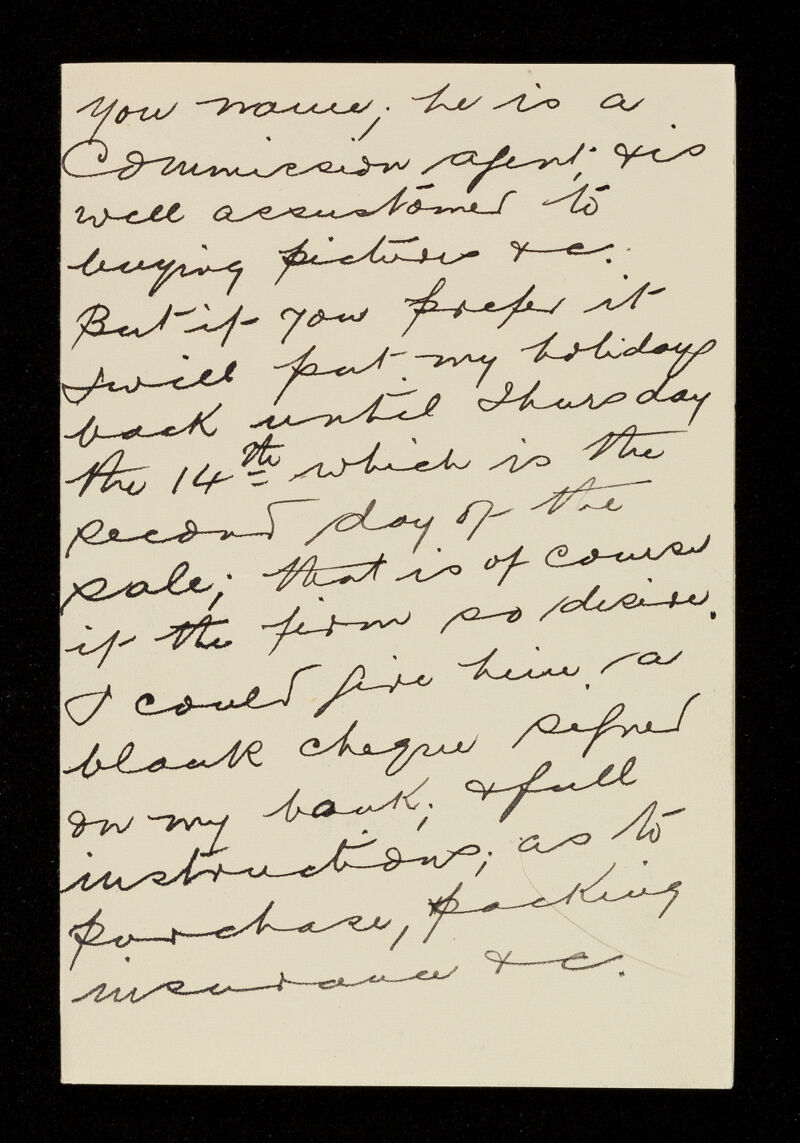 you name; he is a
Commission agent & is
well accustomed to
buying pictures &c.
But if you prefer it
I will put my holiday
back until Thursday
the 14th which is the
second day of the
sale; that is of course
if the firm so desire.
I could give him a
blank cheque signed
on my bank; & full
instructions; as to
purchase, packing
insurance &c.